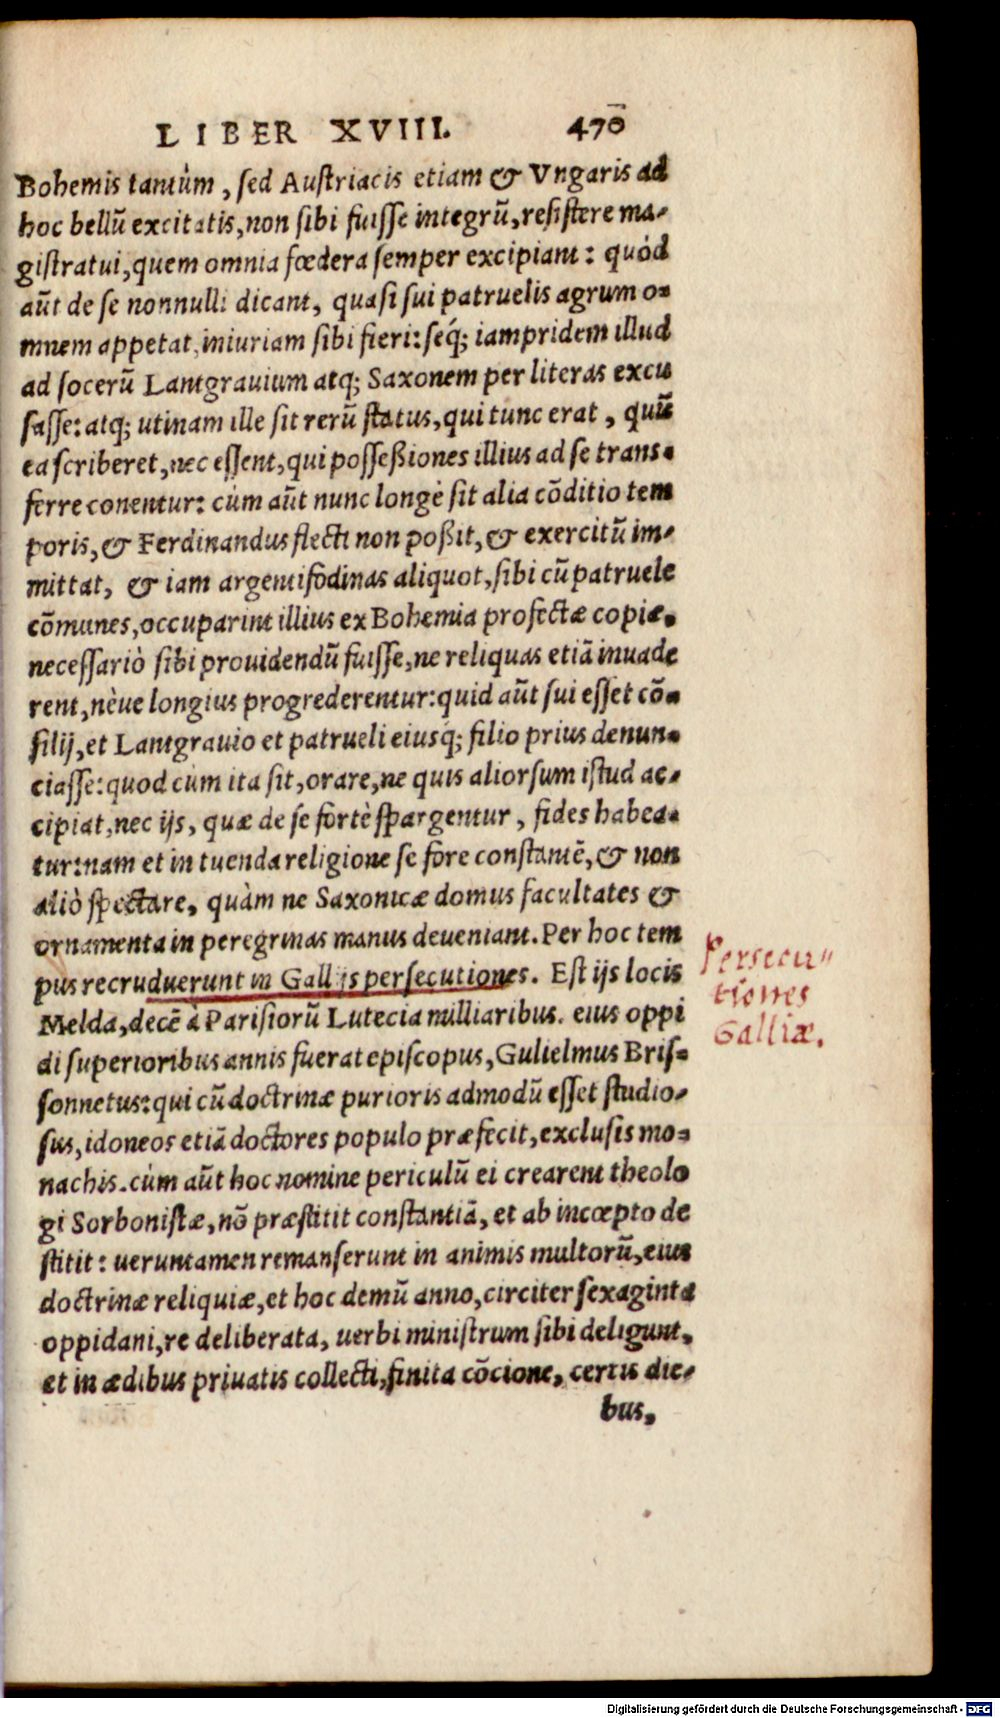 LIBER XVIII. 470
Bohemis tantùm, sed Austriacis etiam & Vngaris ad
hoc bellũ excitatis, non sibi fuisse integrũ, resistere ma-
gistratui, quem omnia fœdera semper excipiant: quòd
aũt de se nonnulli dicant, quasi sui patruelis agrum o-
mnem appetat, iniuriam sibi fieri: seq́; iampridem illud
ad socerũ Lantgrauium atq; Saxonem per literas excu
sasse: atq; utinam ille sit rerũ status, qui tunc erat, quũ
ea scriberet, nec essent, qui posseßiones illius ad se trans-
ferre conentur: cùm aũt nunc longè sit alia cõditio tem
poris, & Ferdinandus flecti non poßit, & exercitũ im-
mittat, & iam argentifodinas aliquot, sibi cũ patruele
cõmunes, occuparint illius ex Bohemia profectæ copiæ,
necessariò sibi prouidendũ fuisse, ne reliquas etiã inuade
rent, nève longius progrederentur: quid aũt sui esset cõ-
silij, et Lantgrauio et patrueli eiusq́; filio prius denun-
ciasse: quod cùm ita sit, orare, ne quis aliorsum istud ac-
cipiat, nec ijs, quæ de se fortè spargentur, fides habea-
tur: nam et in tuenda religione se fore constantẽ, & non
aliò spectare, quàm ne Saxonicæ domus facultates &
ornamenta in peregrinas manus deueniant. Per hoc tem
pus recruduerunt in Gallijs persecutiones. Est ijs locis
Melda, decẽ à Parisiorũ Lutecia milliaribus. eius oppi
di superioribus annis fuerat episcopus, Gulielmus Bris-
sonnetus: qui cũ doctrinæ purioris admodũ esset studio-
sus, idoneos etiã doctores populo præfecit, exclusis mo-
nachis. cùm aũt hoc nomine periculũ ei crearent theolo
gi Sorbonistæ, nõ præstitit constantiã, et ab incœpto de
stitit: ueruntamen remanserunt in animis multorũ, eius
doctrinæ reliquiæ, et hoc demũ anno, circiter sexaginta
oppidani, re deliberata, uerbi ministrum sibi deligunt,
et in ædibus priuatis collecti, finita cõcione, certis die-
bus,
Persecu-
tiones
Galliæ.
Digitalisierung gefördert durch die Deutsche Forschungsgemeinschaft - DFG